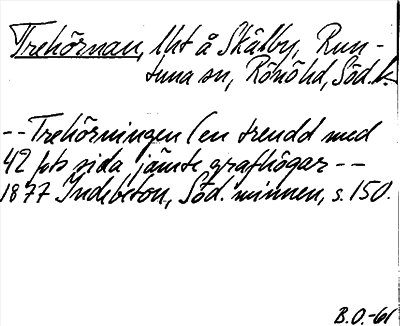 Trehörnan, lht å Skälby, Run-
tuna sn, Rönö hd, Söd.l.
-- Trehörningen (en trendd med
42 fots sida jämte grafhögar --
1877 Indebetou, Söd. minnen, s. 150.
B.O.-61